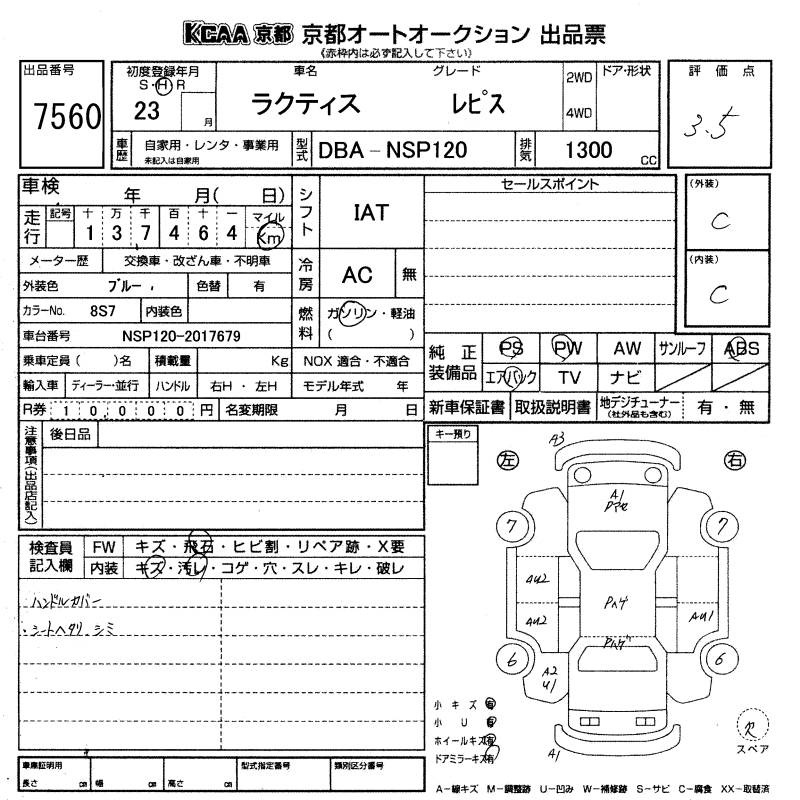 KCAA 京都 京都オートオークション 出品票
《赤枠内は必ず記入して下さい》
出品番号
7560
初度登録年月
S・H・R
23 月
車名
ラクティス
グレード
レピス
2WD
4WD
ドア・形状
評価点
3.5
車歴
自家用・レンタ・事業用
未記入は自家用
型式
DBA-NSP120
排気
1300 CC
車検 年 月( 日)
走行
記号 十 万 千 百 十 一 マイル
1 3 7 4 6 4 Km
シフト
IAT
セールスポイント
(外装)
C
(内装)
C
メーター歴 交換車・改ざん車・不明車
冷房
AC 無
外装色 ブルー 色替 有
カラーNo. 8S7 内装色
燃料
ガソリン・軽油
( )
車台番号 NSP120-2017679
乗車定員( )名 積載量 Kg NOX 適合・不適合
輸入車 ディーラー・並行 ハンドル 右H・左H モデル年式 年
R券 10,000円 名変期限 月 日
純正装備品
PS PW AW サンルーフ ABS
エアバック TV ナビ
新車保証書 取扱説明書 地デジチューナー (社外品も含む) 有・無
注意事項(出品店記入)
後日品
キー預り
検査員記入欄
FW キズ・飛石・ヒビ割・リペア跡・X要
内装 キズ・汚レ・コゲ・穴・スレ・キレ・破レ
ハンドルカバー
・シートヘタリ シミ
左 右
A3
A1
7 7
AU2
AU2
Pハゲ
AU1
Pハゲ
6 6
A2
U1
A1
小キズ 有
小U 有
ホイールキズ 有
ドアミラーキズ 有
スペア
車庫証明用
長さ cm 幅 cm 高さ cm
型式指定番号
類別区分番号
A-線キズ M-調整跡 U-凹み W-補修跡 S-サビ C-腐食 XX-取替済